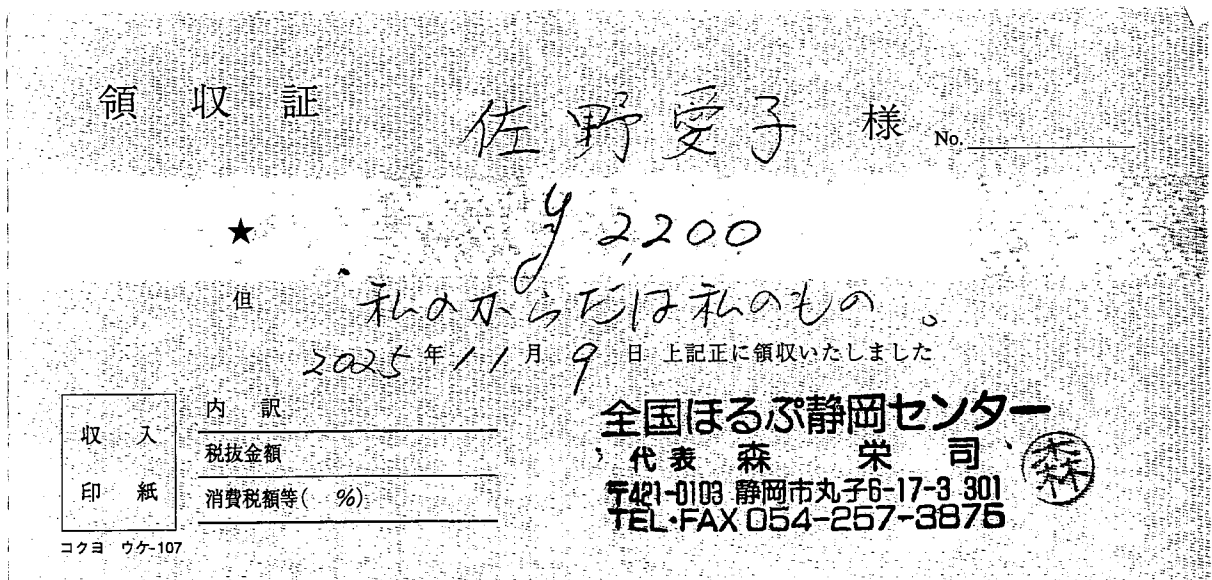 領 収 証 佐野愛子 様 No.
★ ¥2,200
但 私のからだは私のもの。
2025年11月9日 上記正に領収いたしました
収 入
印 紙
内 訳
税抜金額
消費税額等( %)
コクヨ ウケ-107
全国ほるぷ静岡センター
代表 森 栄 司
〒421-0103 静岡市丸子6-17-3 301
TEL・FAX 054-257-3876
森